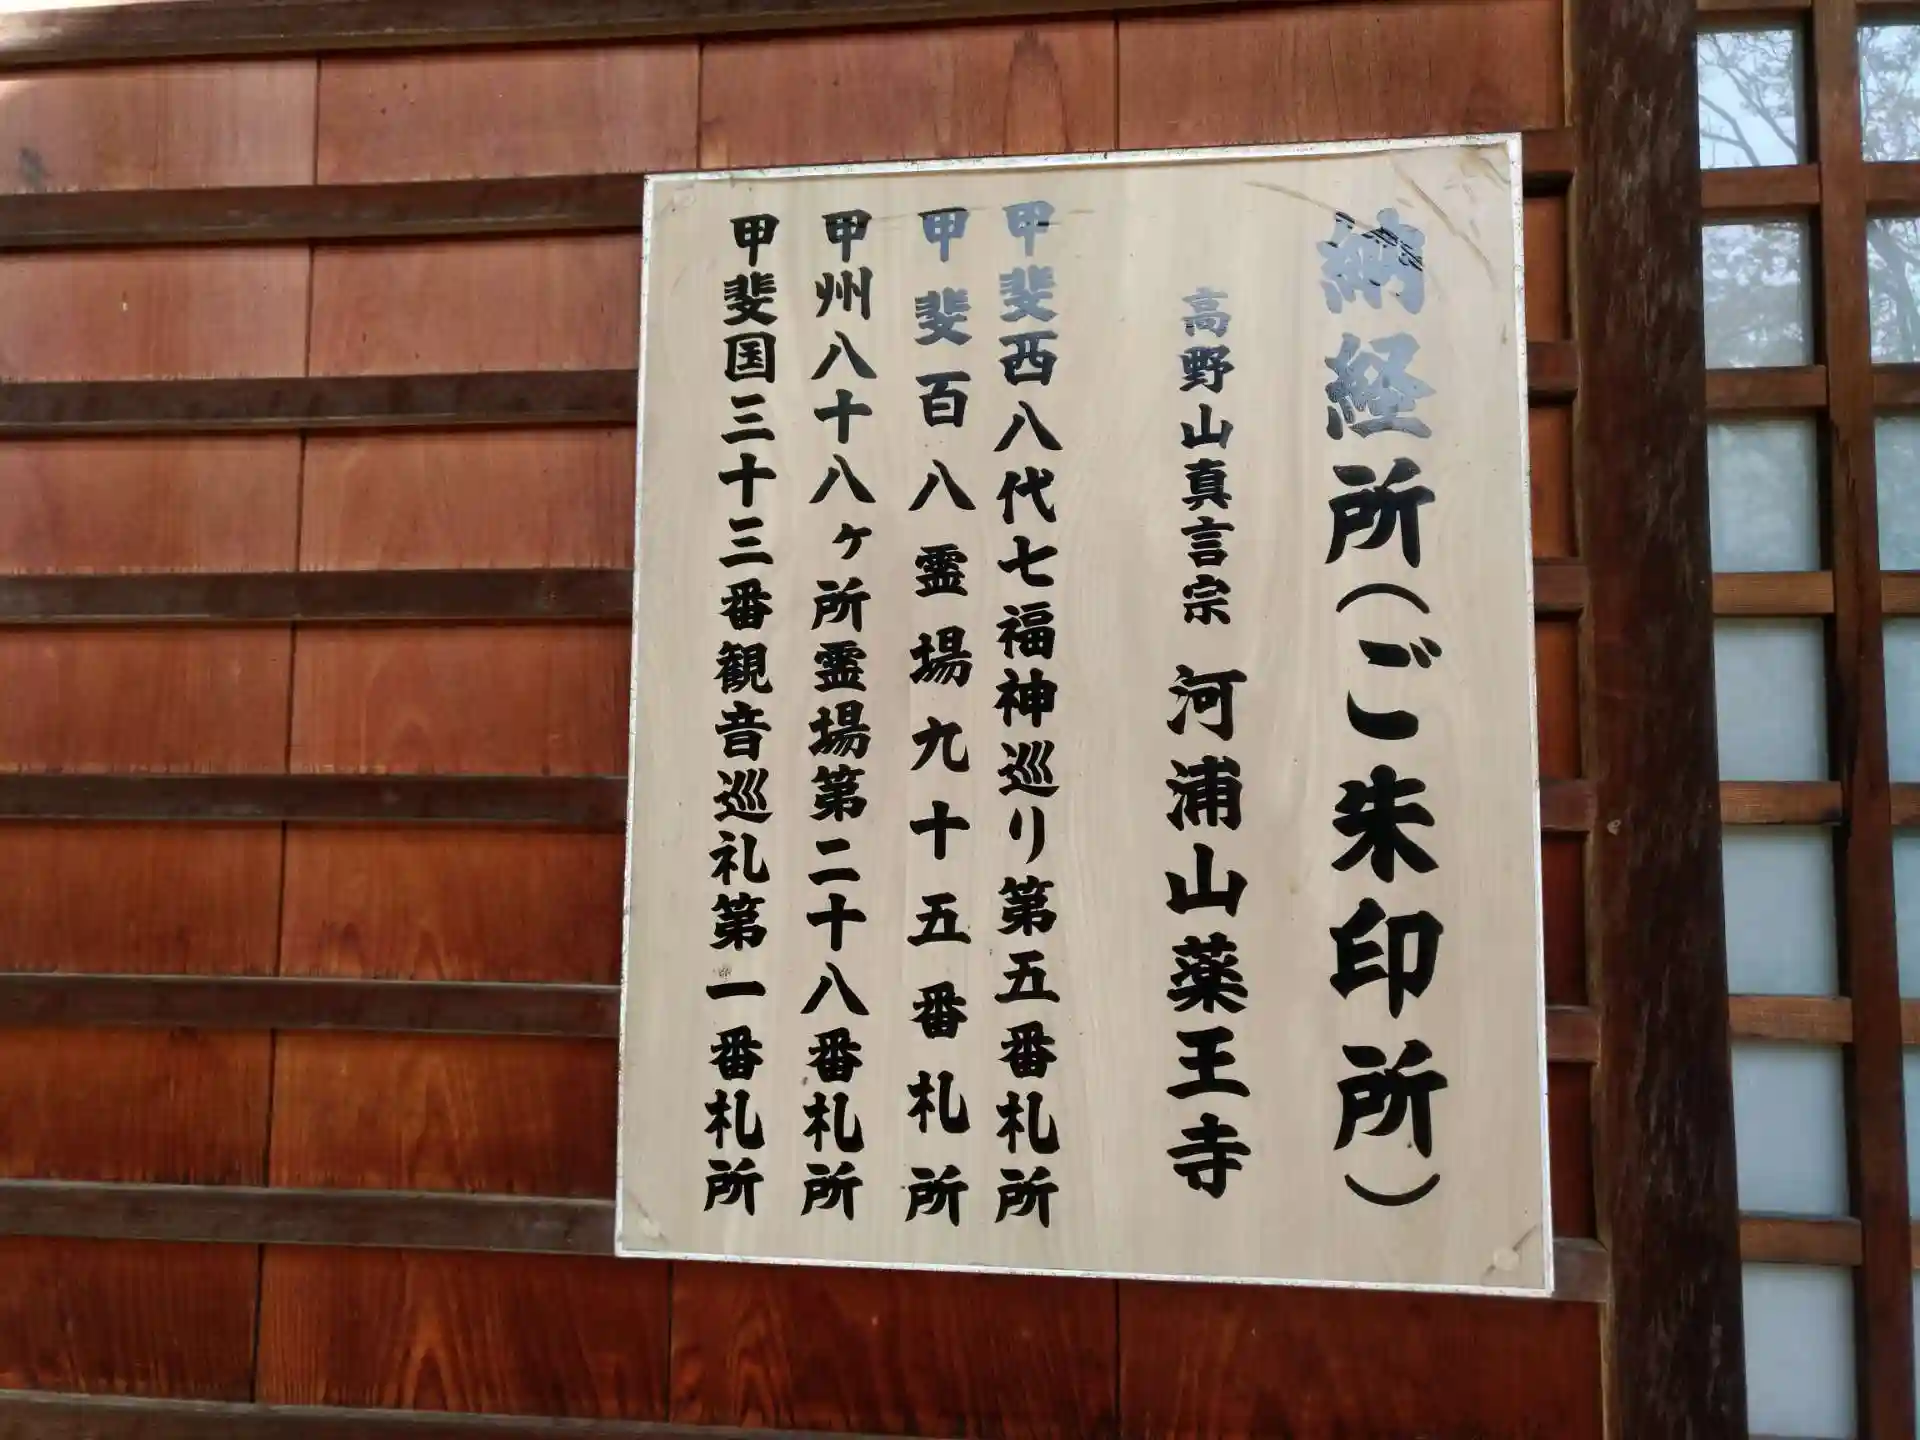 納経所(ご朱印所)
高野山真言宗 河浦山薬王寺
甲斐西八代七福神巡り第五番札所
甲斐百八霊場九十五番札所
甲州八十八ヶ所霊場第二十八番札所
甲斐国三十三番観音巡礼第一番札所